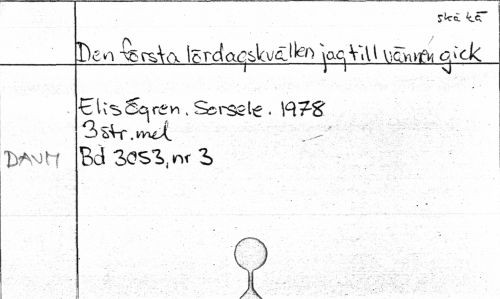 skä kä
Den första lördagskvällen jag till vännen gick
Elis Ögren. Sorsele. 1978
3 str. mel
DAUM Bd 3053, nr 3